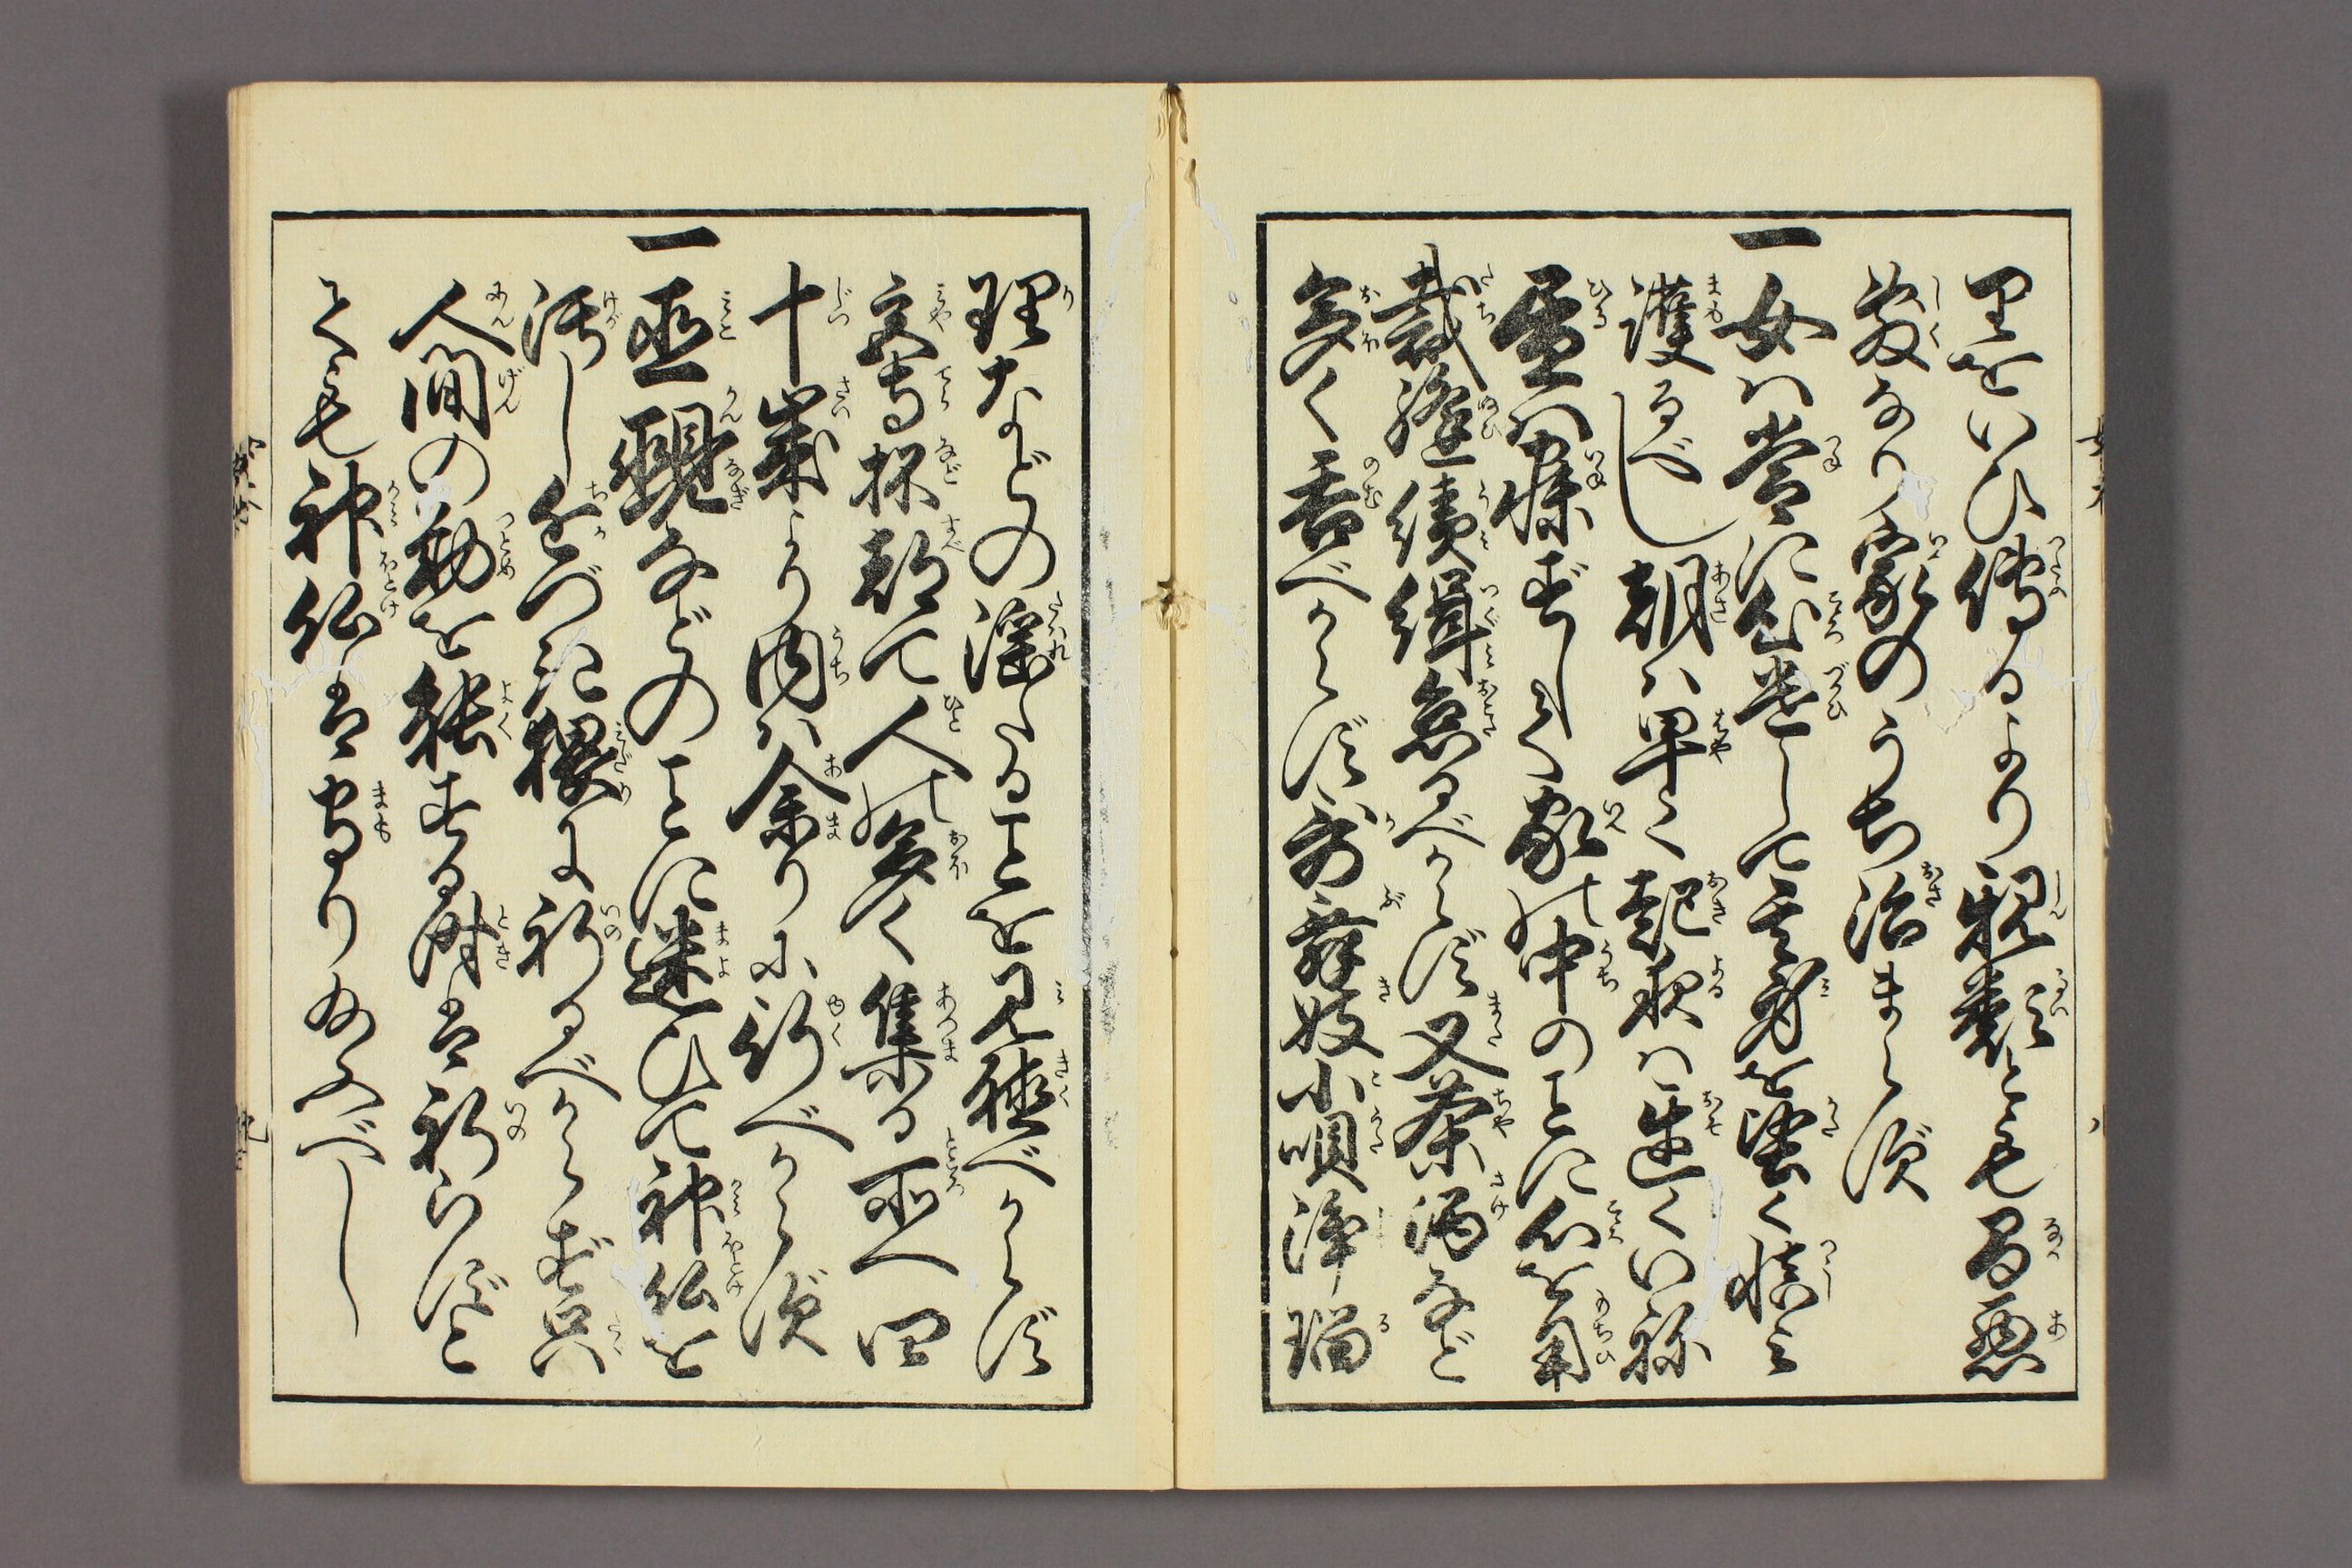 事をいひ傳るより親類とも間悪
敷なり家のうち治まらず
一女は常に心遣して其身を堅く慎み
護るべし朝は早く起夜は遅くいね
晝は寐ずして家の中のことに心を用
裁縫績緝怠るべからず又茶酒など
多く呑べからず歌舞妓小唄浄瑠
理などの淫たることを見聴べからず
宮寺杯都て人の多く集る所へ四
十歳より内は余りに行べからず
一巫覡などのことに迷ひて神仏を
汚し近づき猥に祈るべからず只
人間の勤を能する時は祈らずと
ても神仏は守り給ふべし